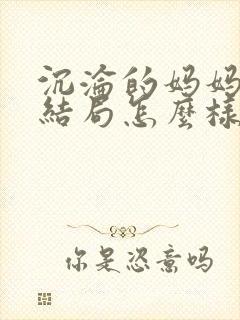 沉淪的妈妈
結局怎麼樣
你是恣意吗